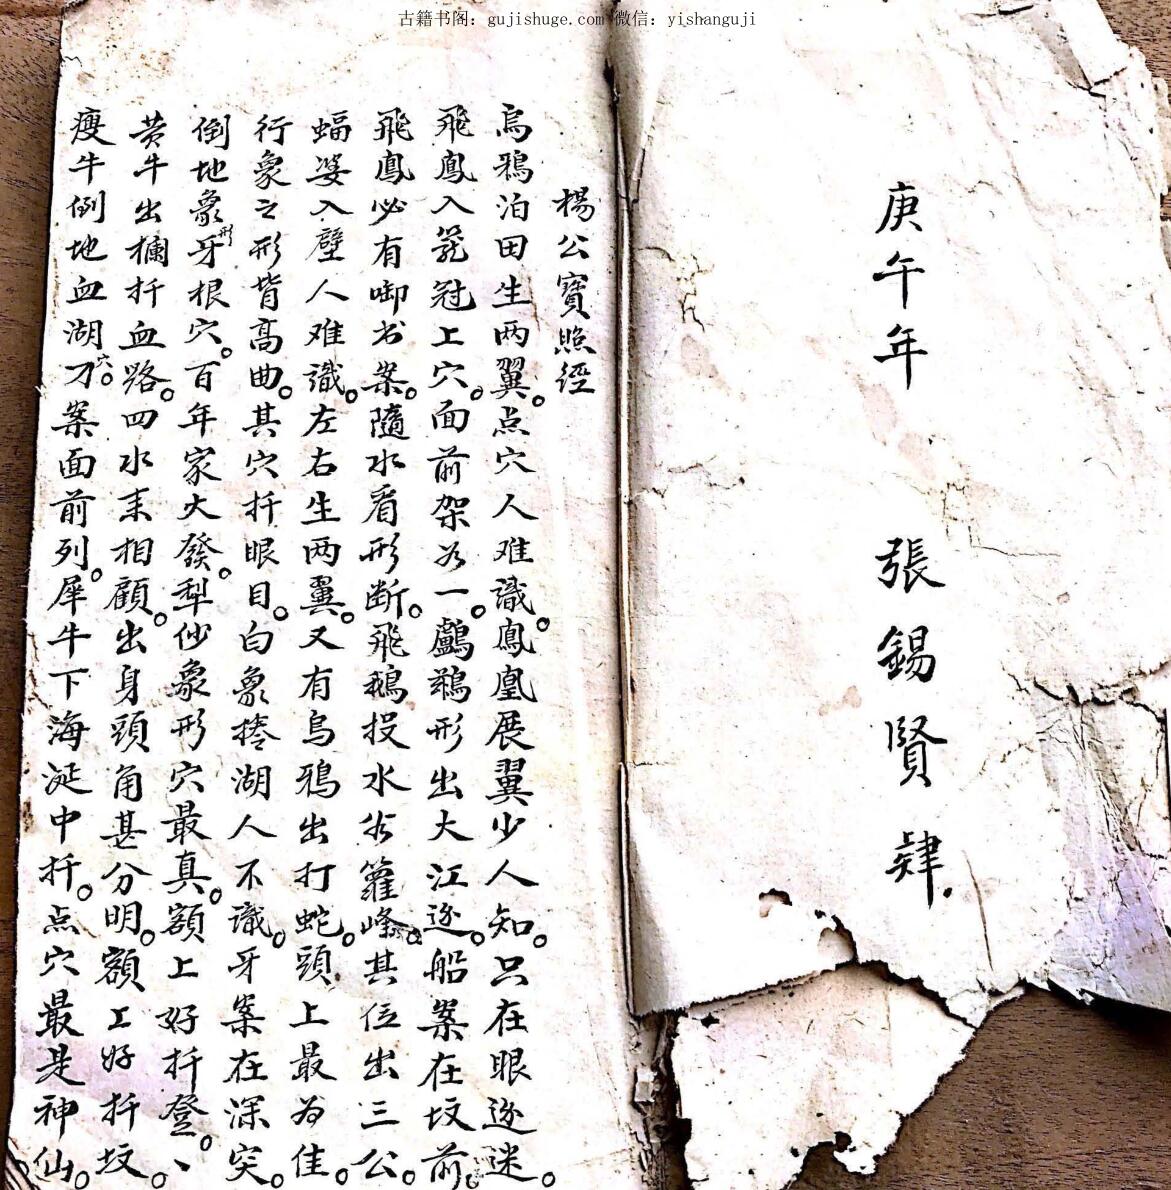 古籍书阁：gujishuge.com 微信：yishanguji
庚午年 張錫賢肆
楊公寶照經
烏鴉泊田生两翼。点穴人难識。鳳凰展翼少人知。只在眼逐迷。
飛鳳入篭冠上穴。面前架為一。鸕鶿形出大江逐。船案在坟前。
飛鳳必有啣书案。隨水看形断。飛鵝投水出籮峰。其位出三公。
蝠婆入壁人难識。左右生两翼。又有烏鴉出打蛇。頭上最为佳。
行象之形背高曲。其穴扦眼目。白象捲湖人不識。牙案在深突。
倒地象形牙根穴。百年家大發。犁伆象形穴最真。額上好扦登。
黄牛出欄扦血路。四水来相顧。出身頭角甚分明。額工好扦坟。
瘦牛倒地血湖刀穴。案面前列。犀牛下海涎中扦。点穴最是神仙。